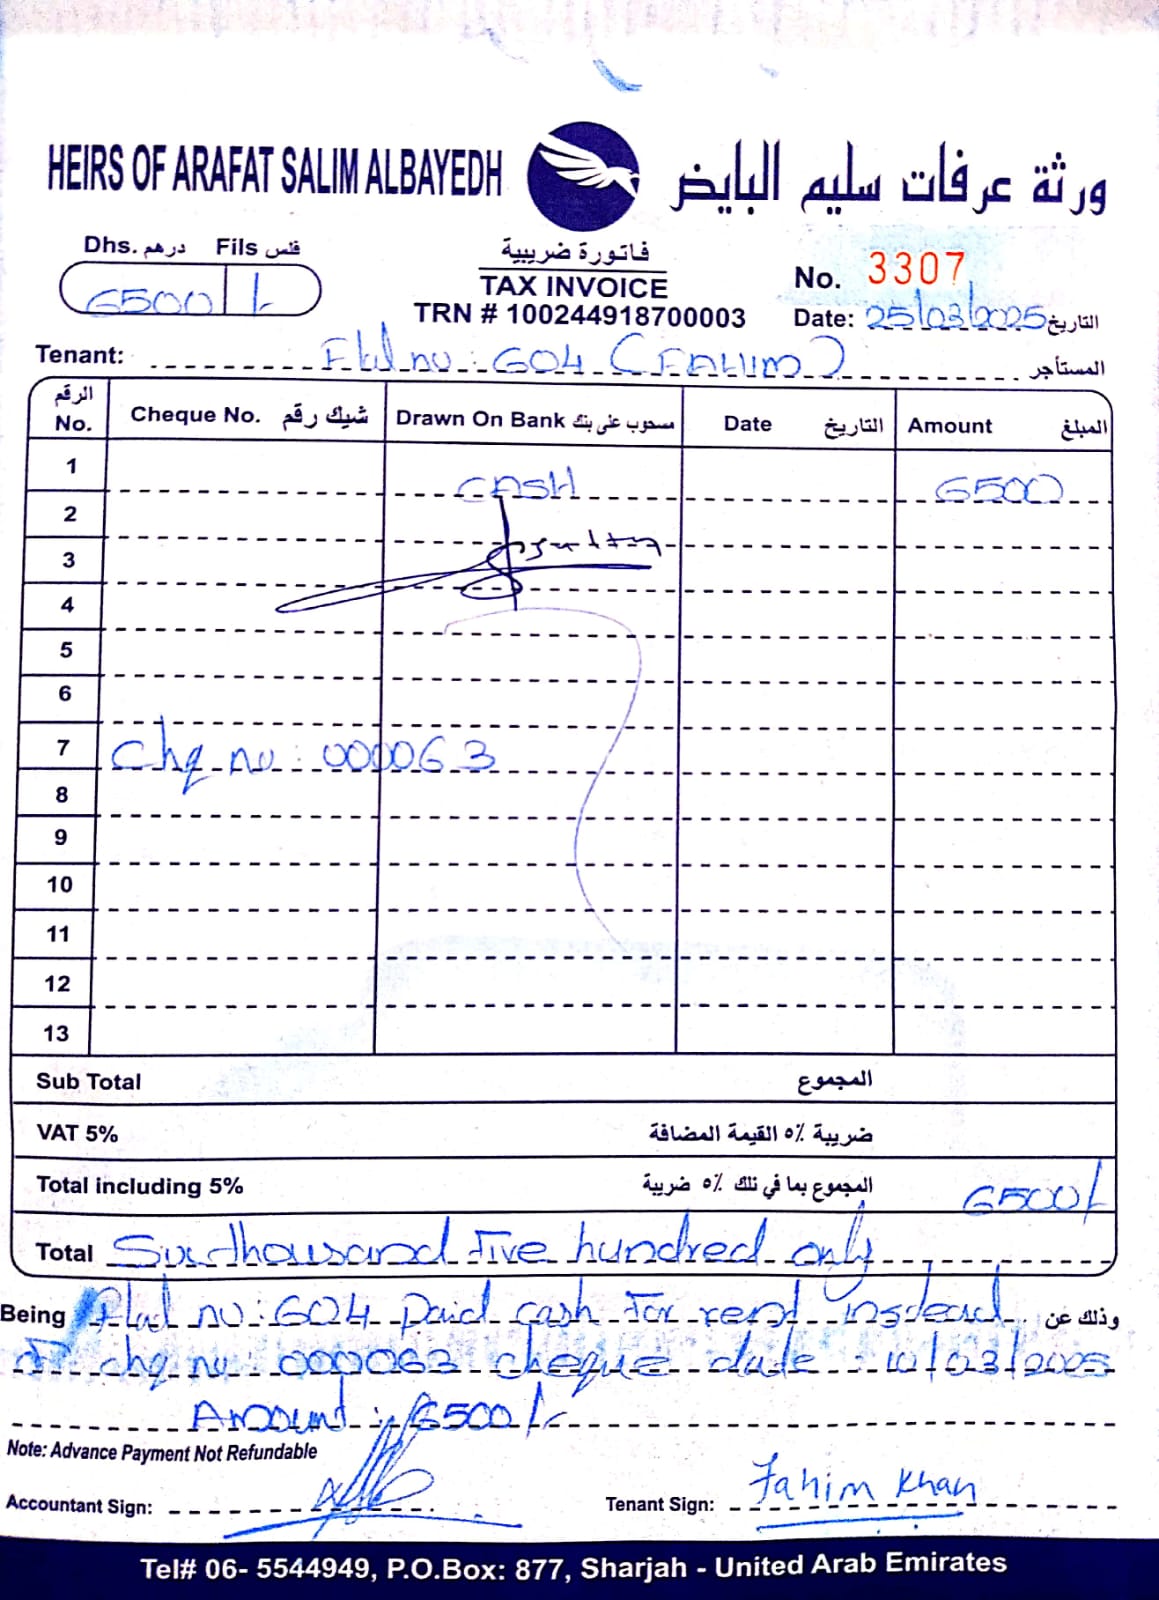 HEIRS OF ARAFAT SALIM ALBAYEDH ورثة عرفات سليم البايض
Dhs. درهم Fils فلس
6500 /-
فاتورة ضريبية
TAX INVOICE
TRN # 100244918700003
No. 3307
Date: 25/03/2025 التاريخ
Tenant: Flat no: 604 (FAHIM) المستأجر
الرقم No. Cheque No. شيك رقم Drawn On Bank مسحوب على بنك Date التاريخ Amount المبلغ
1 CASH 6500
2
3
4
5
6
7 Chq no: 000063
8
9
10
11
12
13
Sub Total المجموع
VAT 5% ضريبة ٥٪ القيمة المضافة
Total including 5% المجموع بما في تلك ٥٪ ضريبة 6500/-
Total Six thousand Five hundred only
Being Flat no: 604 Paid cash for rent instead وذلك عن
of chq no: 000063 cheque date: 10/03/2025
Amount: 6500/-
Note: Advance Payment Not Refundable
Accountant Sign:
Tenant Sign: Fahim Khan
Tel# 06- 5544949, P.O.Box: 877, Sharjah - United Arab Emirates